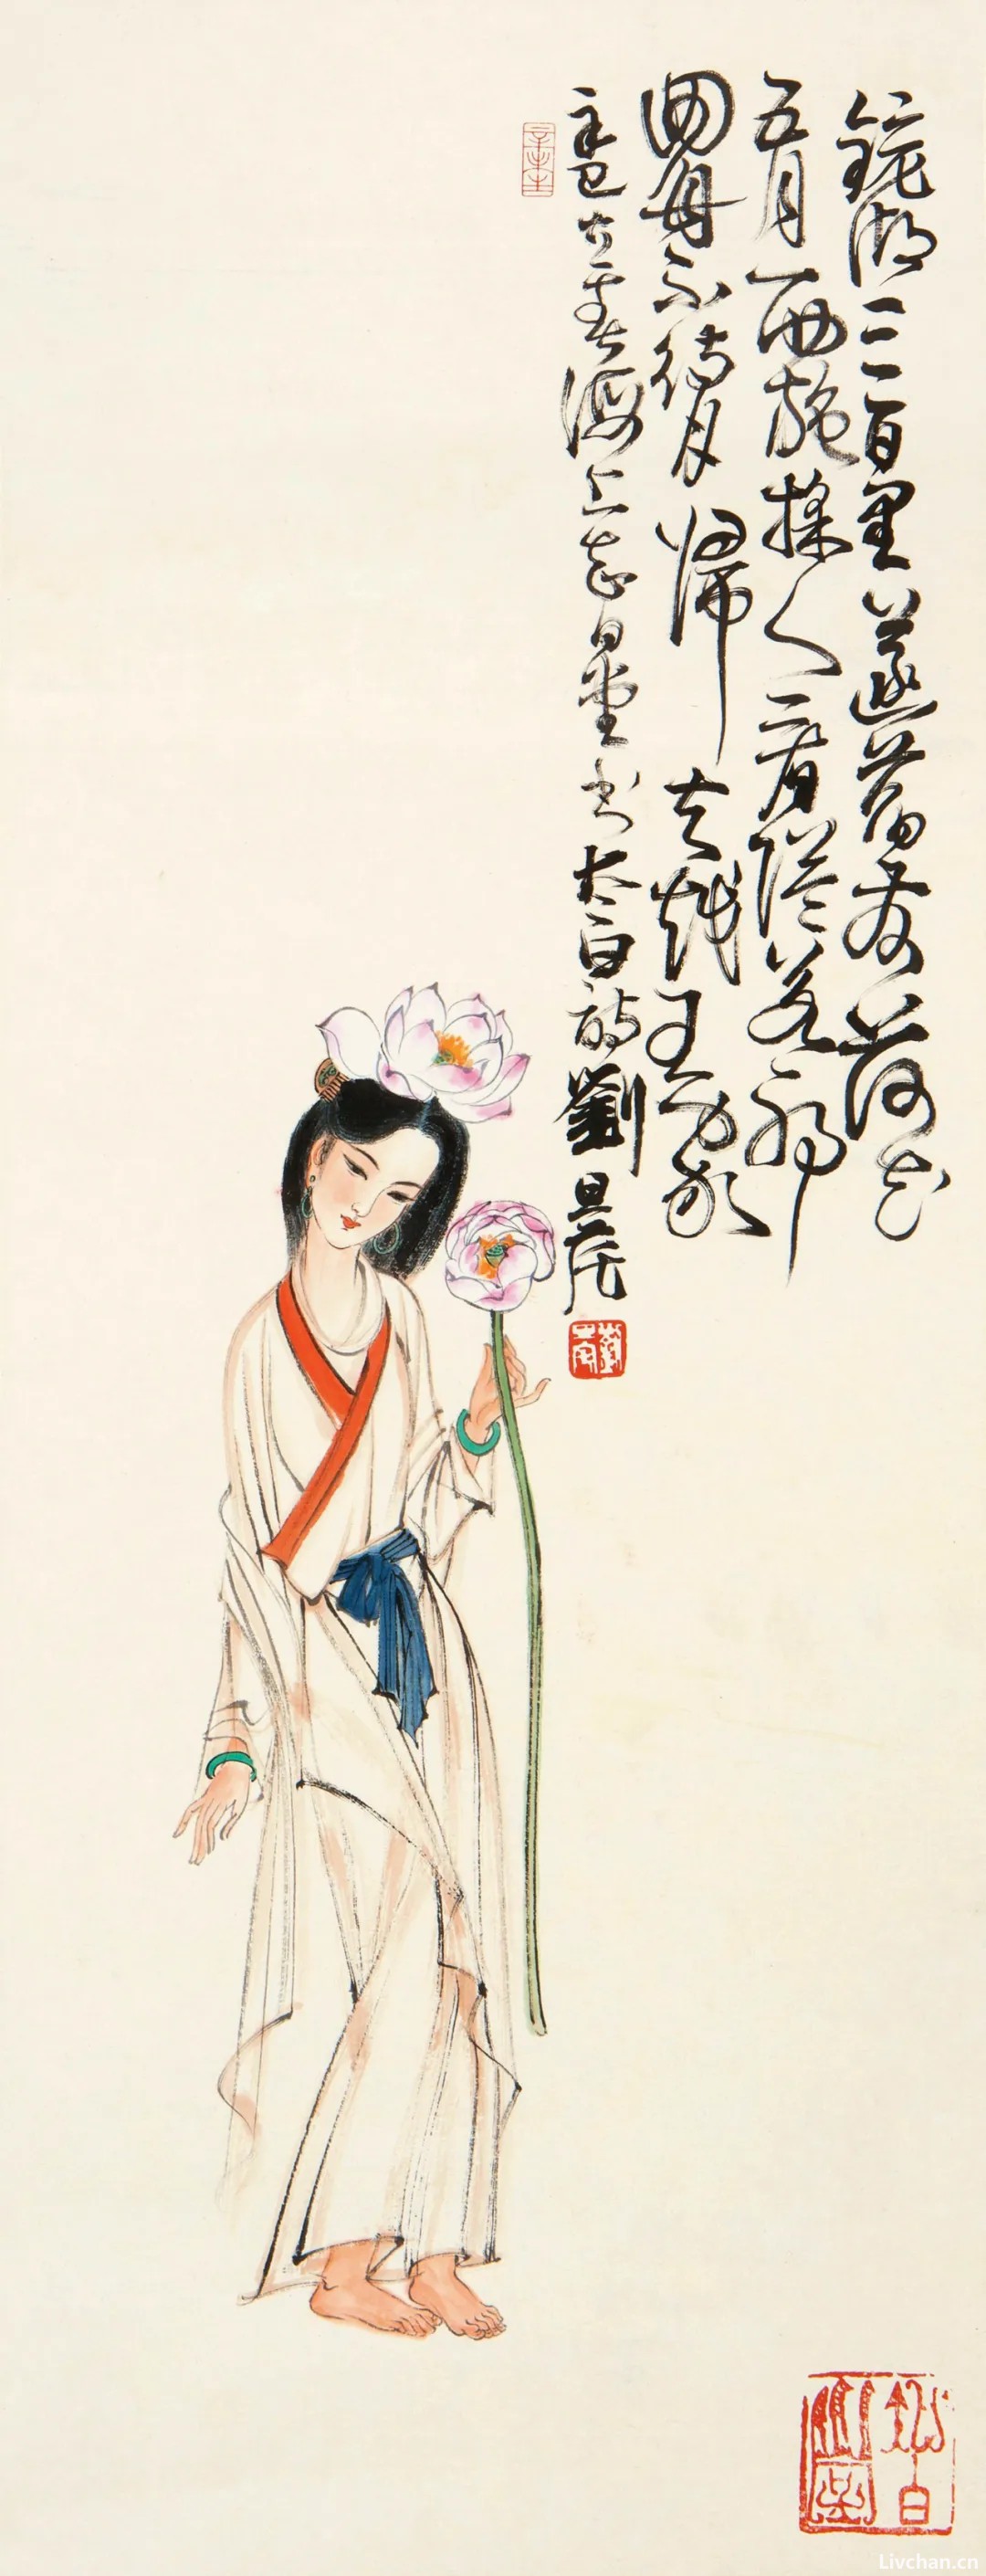 鏡湖三百里菡萏發荷花
五月西施採人看隘若耶
囬舟不待月歸去越王家
辛巳 海上 書太白詩劉旦宅
Livchan.cn